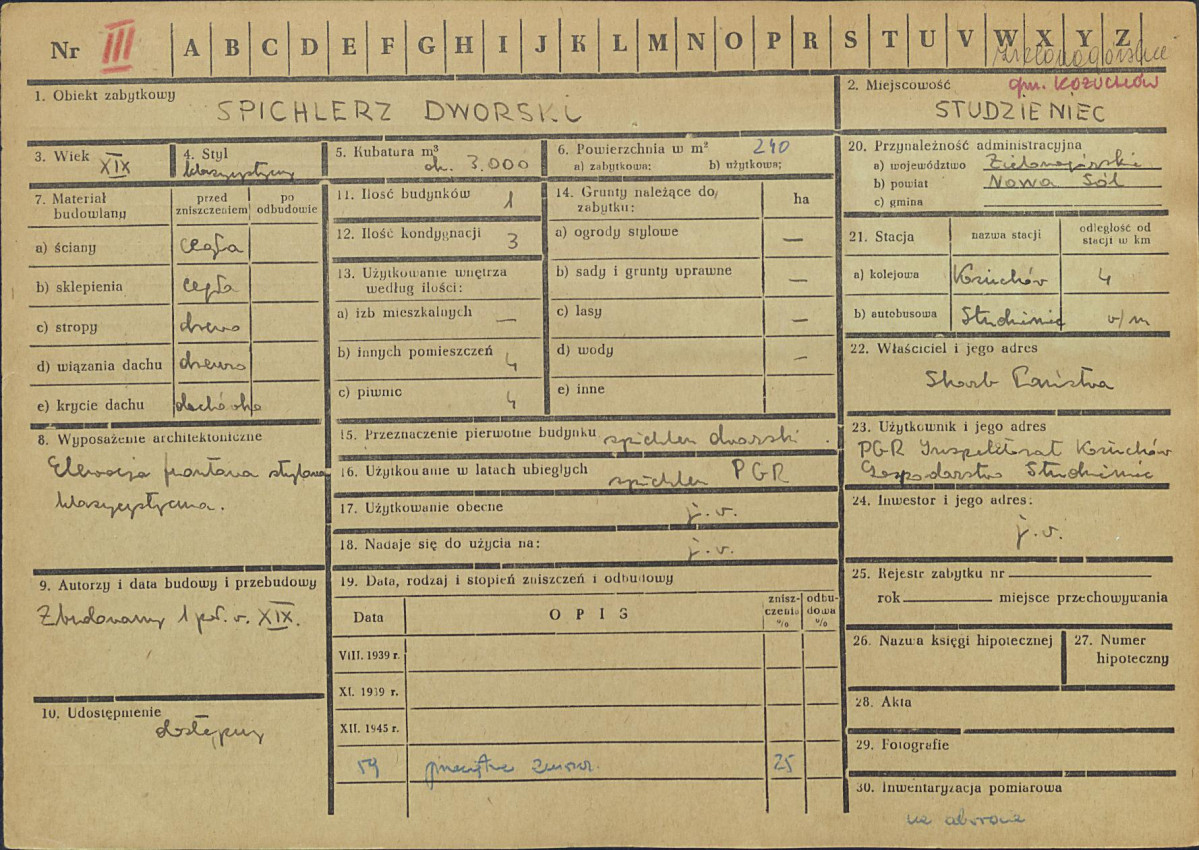 Nr III A B C D E F G H I J K L M N O P R S T U V W X Y Z
zielonogórskie
gm. KOŻUCHÓW
1. Obiekt zabytkowy
SPICHLERZ DWORSKI
2. Miejscowość
STUDZIENIEC
3. Wiek XIX
4. Styl
klasycystyczny
5. Kubatura m³
ok. 3.000
6. Powierzchnia w m² 240
a) zabytkowa: b) użytkowa:
7. Materiał budowlany
przed zniszczeniem
po odbudowie
a) ściany cegła
b) sklepienia cegła
c) stropy drewno
d) wiązania dachu drewno
e) krycie dachu dachówka
8. Wyposażenie architektoniczne
Elewacja frontowa stylowa
klasycystyczna.
9. Autorzy i data budowy i przebudowy
Zbudowany 1 poł. w. XIX.
10. Udostępnienie
dostępny
11. Ilość budynków 1
12. Ilość kondygnacji 3
13. Użytkowanie wnętrza
według ilości:
a) izb mieszkalnych —
b) innych pomieszczeń 4
c) piwnic 4
14. Grunty należące do zabytku: ha
a) ogrody stylowe —
b) sady i grunty uprawne —
c) lasy —
d) wody —
e) inne
15. Przeznaczenie pierwotne budynku spichlerz dworski.
16. Użytkowanie w latach ubiegłych spichlerz PGR
17. Użytkowanie obecne j.w.
18. Nadaje się do użycia na: j.w.
19. Data, rodzaj i stopień zniszczeń i odbudowy
Data OPIS zniszczenia % odbudowa %
VIII. 1939 r.
XI. 1939 r.
XII. 1945 r.
59 25
20. Przynależność administracyjna
a) województwo Zielonogórskie
b) powiat Nowa Sól
c) gmina
21. Stacja nazwa stacji odległość od stacji w km
a) kolejowa Kożuchów 4
b) autobusowa Studzieniec w/m
22. Właściciel i jego adres
Skarb Państwa
23. Użytkownik i jego adres
PGR Inspektorat Kożuchów
Gospodarstwo Studzieniec
24. Inwestor i jego adres:
j.w.
25. Rejestr zabytku nr
rok miejsce przechowywania
26. Nazwa księgi hipotecznej
27. Numer hipoteczny
28. Akta
29. Fotografie
30. Inwentaryzacja pomiarowa
na